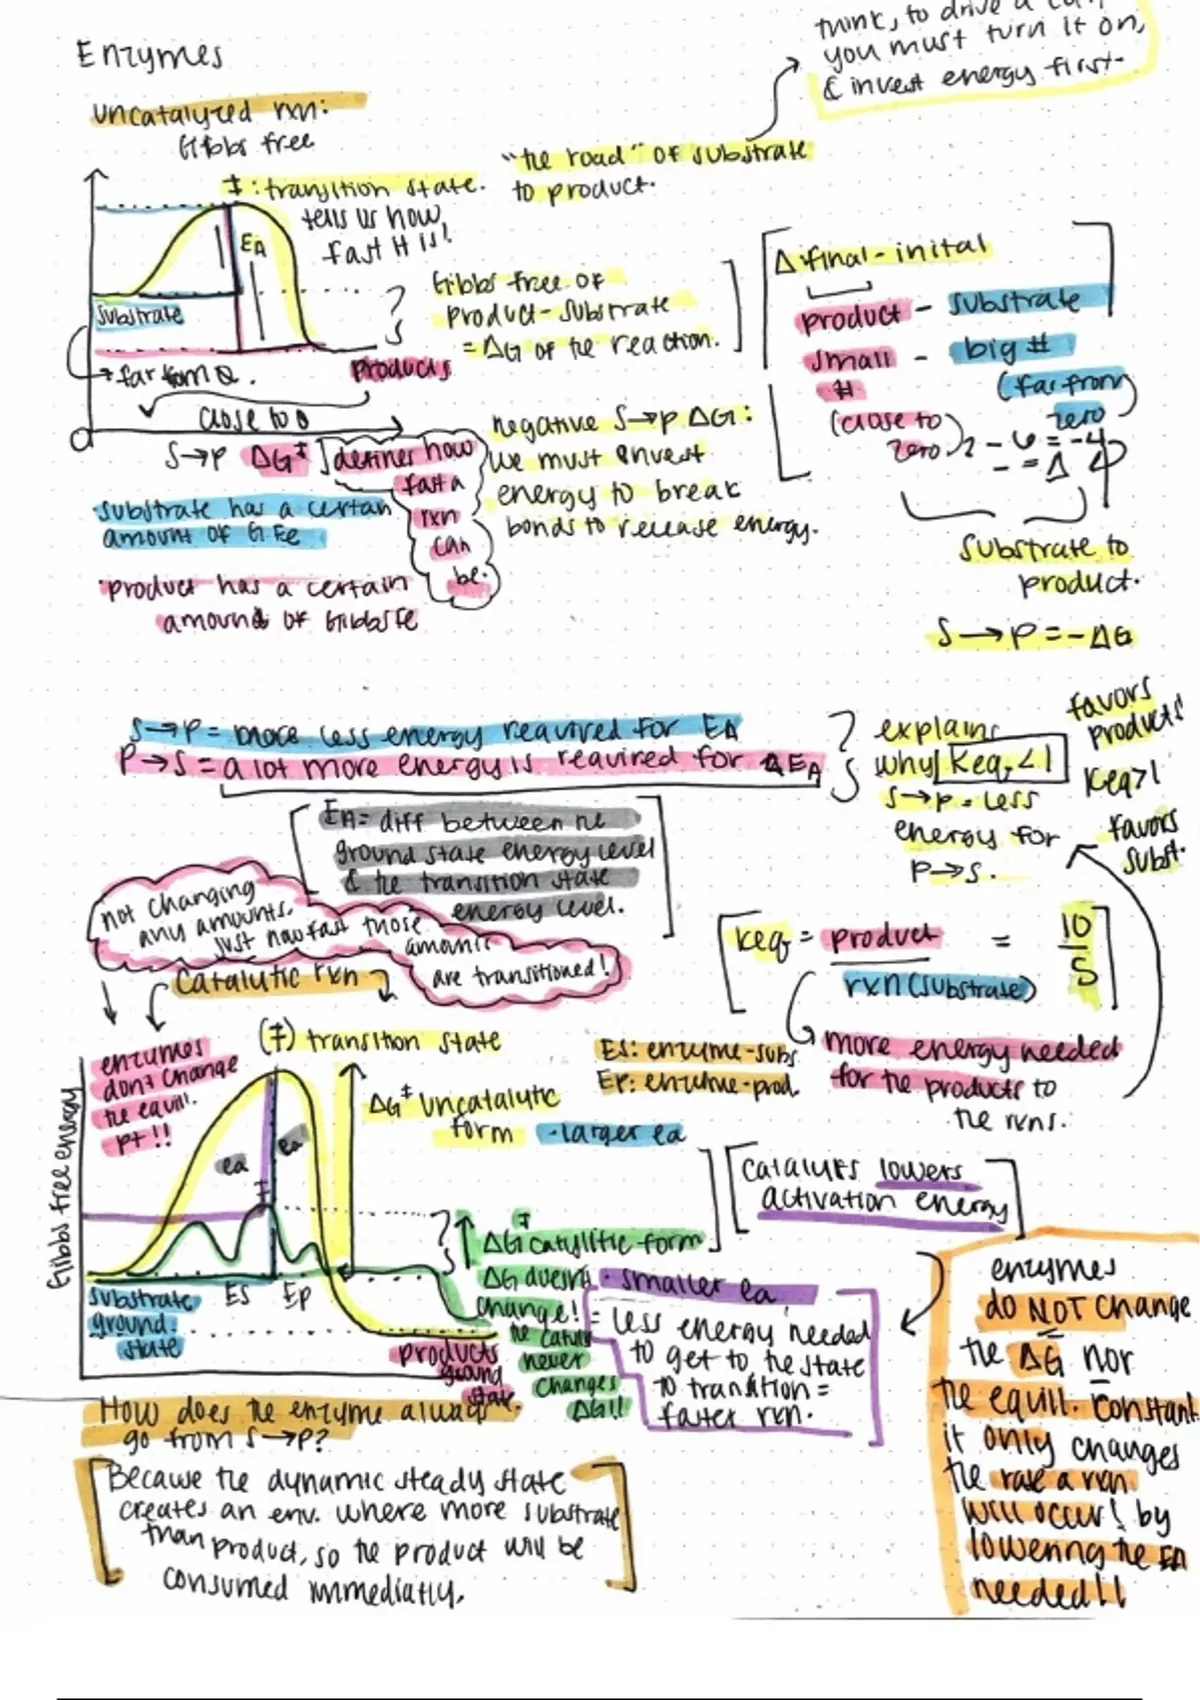 Enzymes
think, to drive a car,
you must turn it on,
& invest energy first-
uncatalyzed rxn:
Gibbs free
"the road" of substrate
to product.
‡: transition state.
tells us how
fast it is!
EA
substrate
→ far from 0.
products
close to 0
Gibbs free of
product - substrate
= ΔG of the reaction.
Δ: final - inital
product - substrate
small - big #
#
(far from
zero)
(close to
zero)
2 - 6 = -4
- = Δ G
substrate to
product.
S → P = -ΔG
S→P ΔG‡] defines how
fast a
rxn
can
be.
negative S→P ΔG:
we must invest
energy to break
bonds to release energy.
substrate has a certain
amount of G.Fe
·product has a certain
amount of GibbsFe
S→P = less energy required for EA
P→S = a lot more energy is required for EA
explains
why Keq<1
S→P = less
energy for
P→S.
favors
products
Keq>1
favors
subst.
EA = diff between the
ground state energy level
& the transition state
energy level.
not changing
any amounts.
just how fast those
amounts
are transitioned!
Keq = product = 10
rxn (substrate) 5
more energy needed
for the products to
the rxns.
catalytic rxn
enzymes
don't change
the equil.
pt!!
(‡) transition state
Es: enzyme-subs
Ep: enzyme-prod.
ΔG‡ uncatalytic
form - larger ea
Gibbs free energy
ea
ea
catalysts lowers
activation energy
ΔG‡ catylitic form
- smaller ea
ΔG doesn't
change!
the catalyst
never
changes
ΔG!!
= less energy needed
to get to the state
to transition =
faster rxn.
substrate
ground
state
ES EP
products
ground
state.
enzymes
do NOT change
the ΔG nor
the equill. constant.
it only changes
the rate a rxn
will occur! by
lowering the EA
needed!!
How does the enzyme always
go from S→P?
Because the dynamic steady state
creates an env. where more substrate
than product, so the product will be
consumed immediatly.